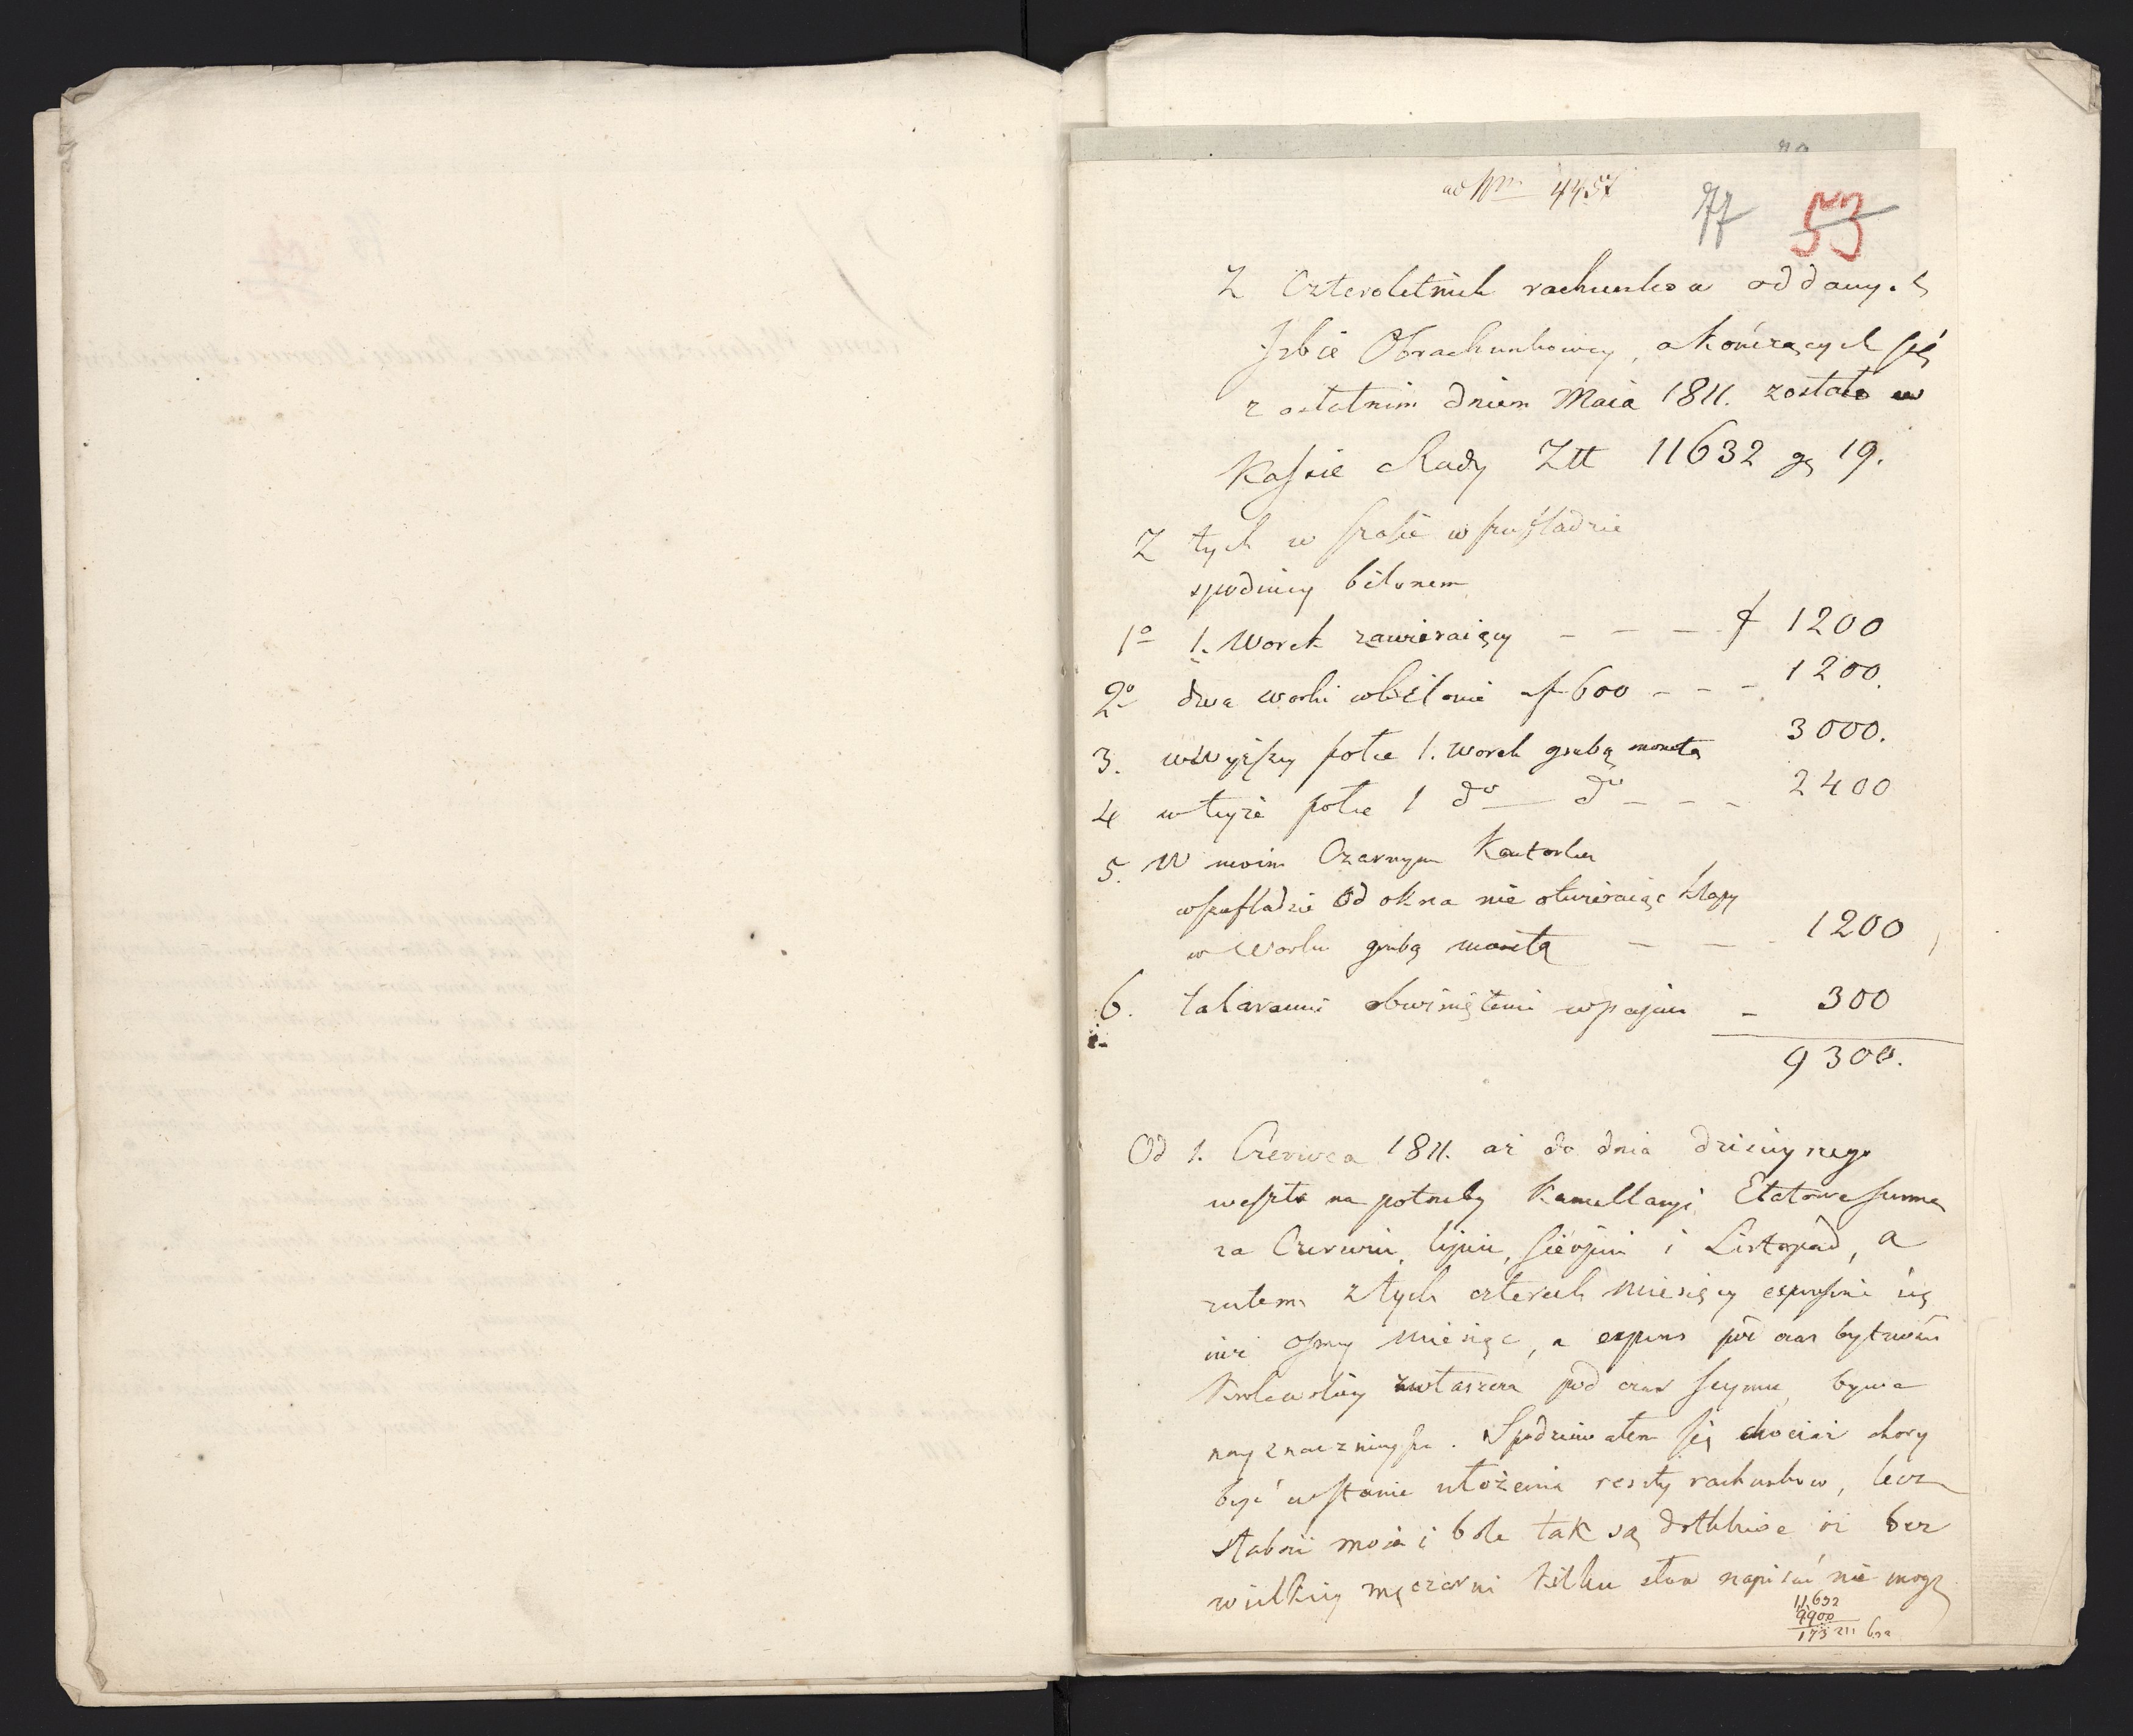 ad Nrm 4457
77 53
Z Czteroletnich rachunkow oddanych
Izbie Obrachunkowey, a kończących się
z ostatnim dniem Maia 1811. zostało w
Kassie Rady Ztt 11632 gr 19.
Z tych w szafie w szufladzie
spodniey bilonem
1o 1. Worek zawieraiący - - - f 1200
2o dwa worki w bilonie a f 600 - - - 1200.
3. w wyższey połce 1. worek grubą monetą 3000.
4 w teyże połce 1 do do - - - 2400
5. W moim Czarnym Kantorku
w szufladzie Od okna nie otwieraiąc klapy
w Worku grubą monetą - - - 1200
6. talarami obwiniętemi w papier - 300
9300.
Od 1. Czerwca 1811. aż do dnia dzisieyszego
weszła na potrzeby Kancellaryi Etatowa summa
za Czerwiec, lipiec, sierpień i Listopad, a
zatem z tych czterech miesięcy expensuie się
iuż osmy miesiąc, a expens pod czas bytności
Krolewskiey zwłaszcza pod czas seymu bywa
nayznacznieysza. Spodziewałem się chociaż chory
być w stanie ułożenia reszty rachunkow, lecz
słabość moia i bole tak są dotkliwe iż bez
wielkiey męczarni kilku słow napisać nie mogę
11,632
9900